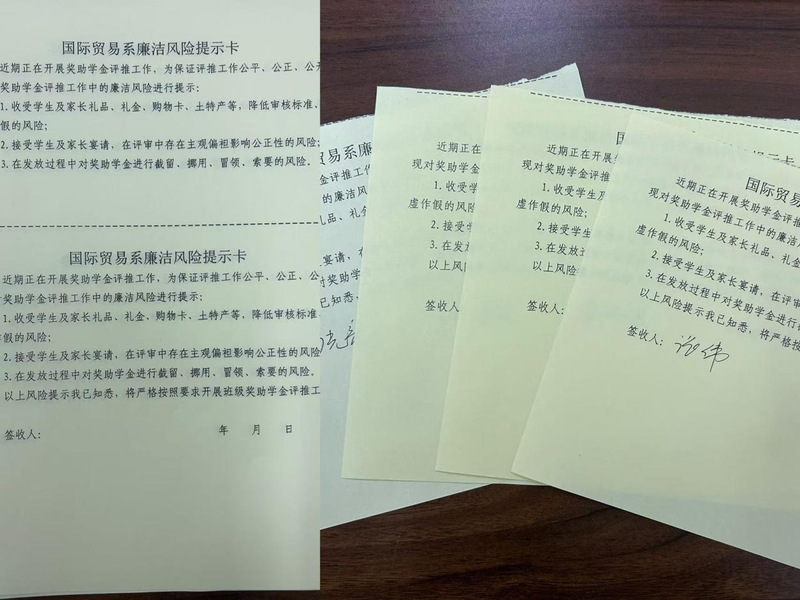 国际贸易系廉洁风险提示卡
近期正在开展奖助学金评推工作，为保证评推工作公平、公正、公开
奖助学金评推工作中的廉洁风险进行提示；
1.收受学生及家长礼品、礼金、购物卡、土特产等，降低审核标准、
假的风险；
2.接受学生及家长宴请，在评审中存在主观偏袒影响公正性的风险；
3.在发放过程中对奖助学金进行截留、挪用、冒领、索要的风险。
国际贸易系廉洁风险提示卡
近期正在开展奖助学金评推工作，为保证评推工作公平、公正、公
奖助学金评推工作中的廉洁风险进行提示；
1.收受学生及家长礼品、礼金、购物卡、土特产等，降低审核标准
作假的风险；
2.接受学生及家长宴请，在评审中存在主观偏袒影响公正性的风险
3.在发放过程中对奖助学金进行截留、挪用、冒领、索要的风险。
以上风险提示我已知悉，将严格按照要求开展班级奖助学金评推工
签收人： 年 月 日
贸易系廉洁风
金评推工作
的廉洁风
礼品、
近期正在开
现对奖助学金评
1.收受学
虚作假的风险；
2.接受学
3.在发放
以上风
签收人
近期正在开展
现对奖助学金评推
1.收受学生
虚作假的风险；
2.接受学生
3.在发放过
以上风险
签收人：
提示卡
国际贸易
近期正在开展奖助学金评推
现对奖助学金评推工作中的廉洁
1.收受学生及家长礼品、礼金
虚作假的风险；
2.接受学生及家长宴请，在评审
3.在发放过程中对奖助学金进行
以上风险提示我已知悉，将严格按
签收人：